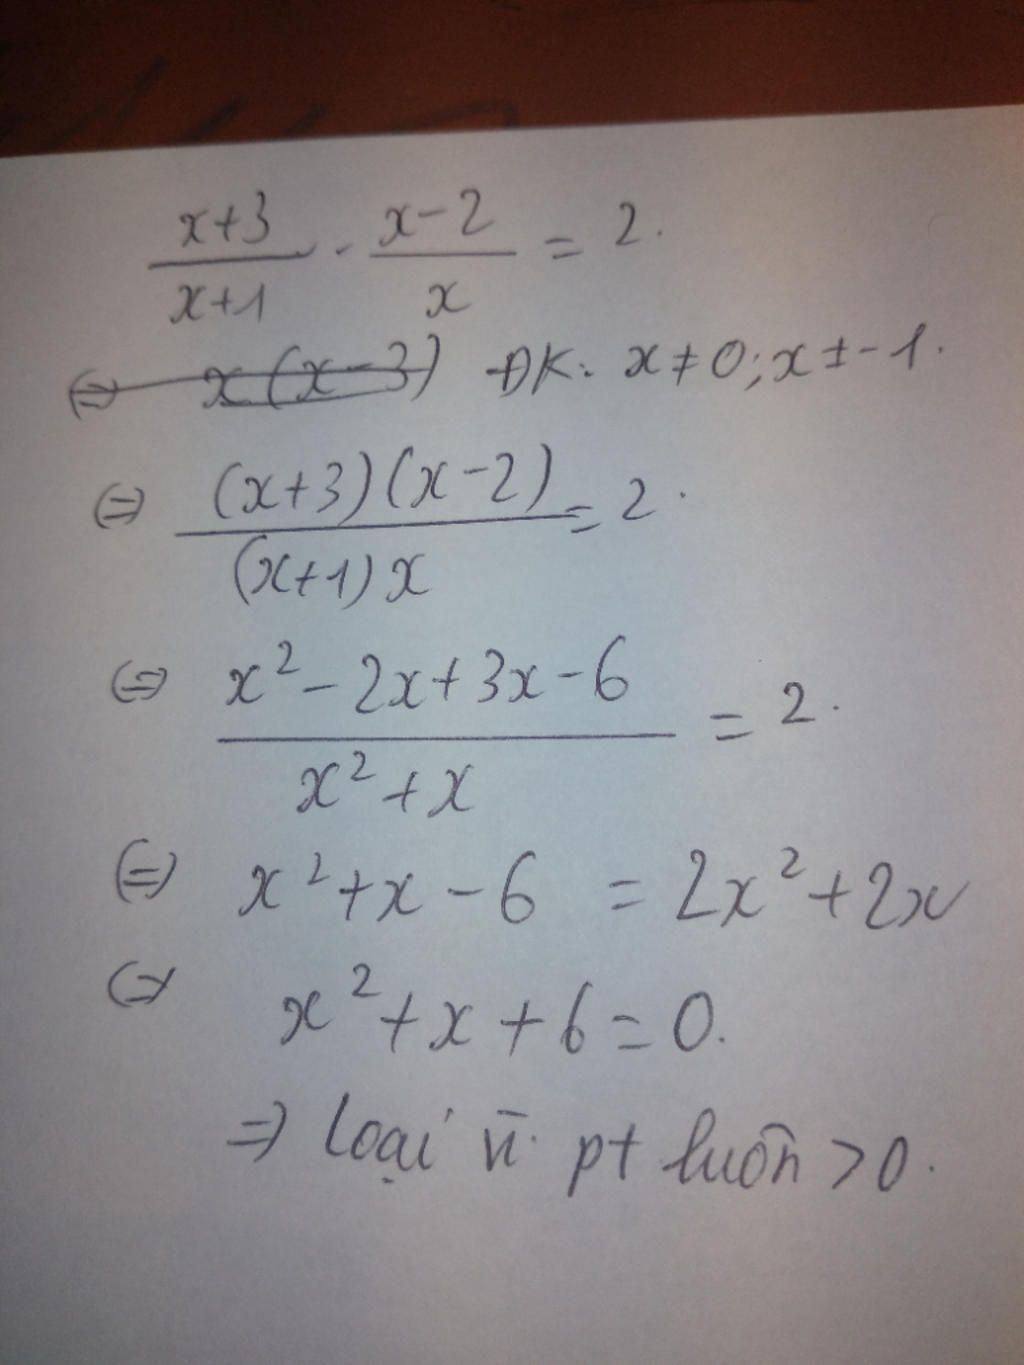 x+3/x+1 . x-2/x = 2.
(=) x(x-3) ĐK: x ≠ 0; x ≠ -1.
(=) (x+3)(x-2)/(x+1)x = 2.
(=) x² - 2x + 3x - 6/x² + x = 2.
(=) x² + x - 6 = 2x² + 2x
(=) x² + x + 6 = 0.
=) Loại vì pt luôn > 0.